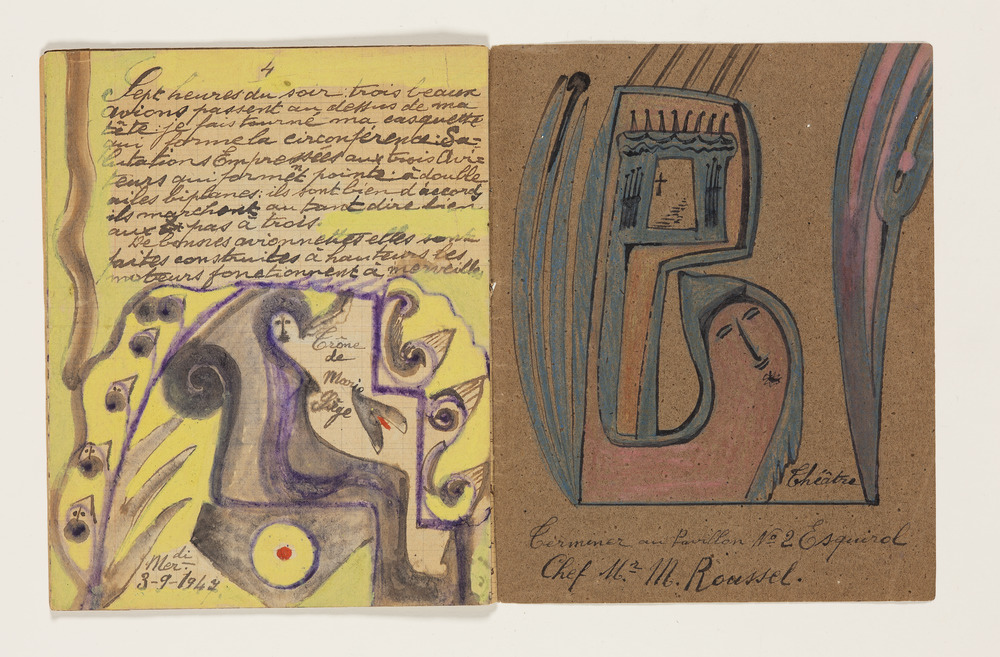 4
Sept heures du soir trois beaux
avions passent au dessus de ma
tête je fais tourné ma casquette
qui forme la circonférence. Sa-
lutations Empressées aux trois Avia-
teurs qui formet pointe à double
ailes biplanes: ils sont bien d'accord,
ils marchent au tant dire bien
aux pas à trois.
De bonnes avionnettes elles sont
faites construites à hauteurs les
moteurs fonctionnent à merveille
Trône
de
Marie
Mer.di
3-9-1947
Théâtre
Términer au Pavillon No 2 Esquirol
Chef Mr M. Roussel.